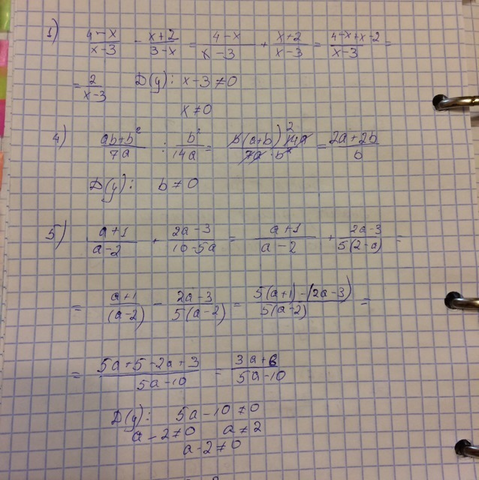 1) (4-x)/(x-3) - (x+2)/(3-x) = (4-x)/(x-3) + (x+2)/(x-3) = (4-x+x-2)/(x-3) =
= 2/(x-3) D(y): x-3≠0
x≠0
4) (ab+b²)/(7a) : b²/(14a) = (b(a+b) 2 14a)/(7a·b²) = (2a+2b)/b
D(y): b≠0
5) (a+1)/(a-2) + (2a-3)/(10-5a) = (a+1)/(a-2) + (2a-3)/(5(2-a)) =
= (a+1)/(a-2) - (2a-3)/(5(a-2)) = (5(a+1)-(2a-3))/(5(a-2)) =
= (5a+5-2a+3)/(5a-10) = (3a+8)/(5a-10)
D(y): 5a-10≠0
a-2≠0 a≠2
a-2≠0